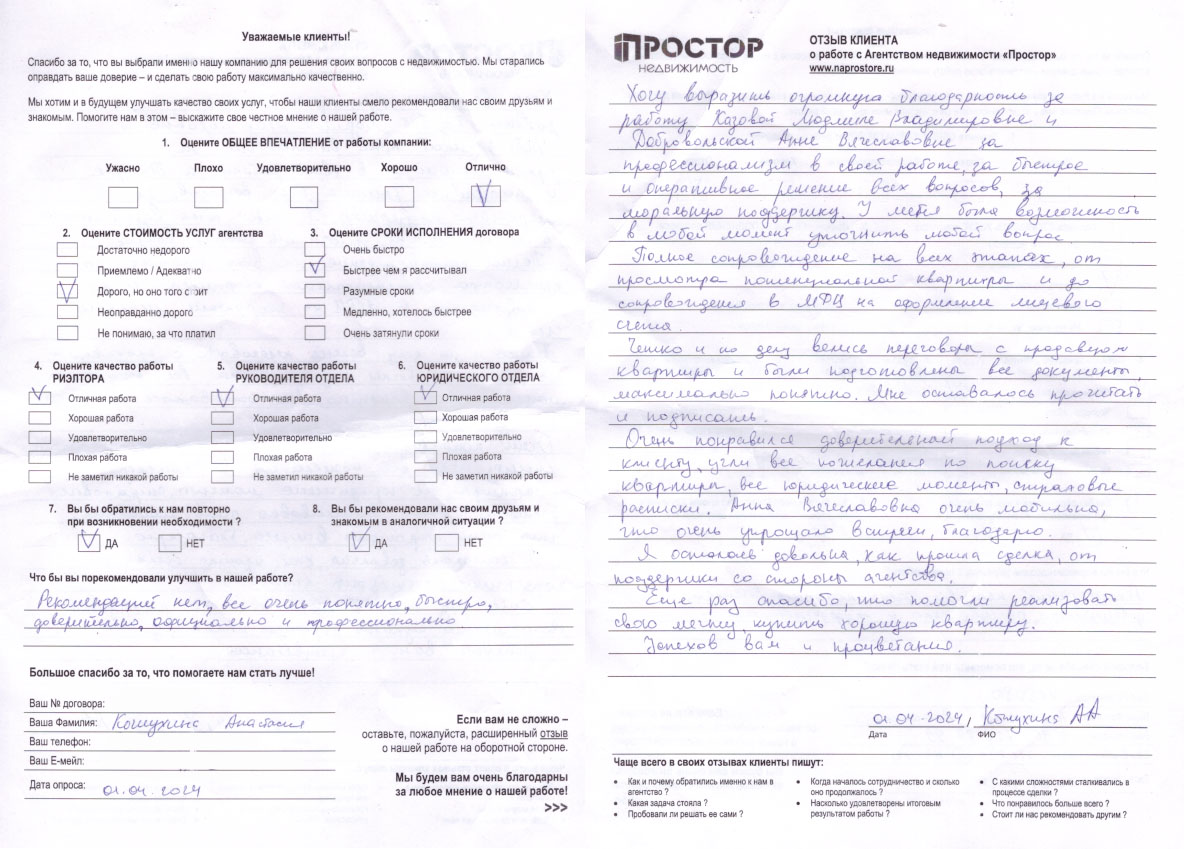 Уважаемые клиенты!
Спасибо за то, что вы выбрали именно нашу компанию для решения своих вопросов с недвижимостью. Мы старались
оправдать ваше доверие – и сделать свою работу максимально качественно.
Мы хотим и в будущем улучшать качество своих услуг, чтобы наши клиенты смело рекомендовали нас своим друзьям и
знакомым. Помогите нам в этом – выскажите свое честное мнение о нашей работе.
1. Оцените ОБЩЕЕ ВПЕЧАТЛЕНИЕ от работы компании:
Ужасно Плохо Удовлетворительно Хорошо Отлично
2. Оцените СТОИМОСТЬ УСЛУГ агентства
Достаточно недорого
Приемлемо / Адекватно
Дорого, но оно того стоит
Неоправданно дорого
Не понимаю, за что платил
3. Оцените СРОКИ ИСПОЛНЕНИЯ договора
Очень быстро
Быстрее чем я рассчитывал
Разумные сроки
Медленно, хотелось быстрее
Очень затянули сроки
4. Оцените качество работы
РИЭЛТОРА
Отличная работа
Хорошая работа
Удовлетворительно
Плохая работа
Не заметил никакой работы
5. Оцените качество работы
РУКОВОДИТЕЛЯ ОТДЕЛА
Отличная работа
Хорошая работа
Удовлетворительно
Плохая работа
Не заметил никакой работы
6. Оцените качество работы
ЮРИДИЧЕСКОГО ОТДЕЛА
Отличная работа
Хорошая работа
Удовлетворительно
Плохая работа
Не заметил никакой работы
7. Вы бы обратились к нам повторно
при возникновении необходимости ?
ДА НЕТ
8. Вы бы рекомендовали нас своим друзьям и
знакомым в аналогичной ситуации ?
ДА НЕТ
Что бы вы порекомендовали улучшить в нашей работе?
Рекомендаций нет, все очень понятно, быстро,
доверительно, официально и профессионально.
Большое спасибо за то, что помогаете нам стать лучше!
Ваш № договора:
Ваша Фамилия: Анастасия
Ваш телефон:
Ваш E-мейл:
Дата опроса: 01.04.2024
Если вам не сложно –
оставьте, пожалуйста, расширенный отзыв
о нашей работе на оборотной стороне.
Мы будем вам очень благодарны
за любое мнение о нашей работе!
>>>
ПРОСТОР
НЕДВИЖИМОСТЬ
ОТЗЫВ КЛИЕНТА
о работе с Агентством недвижимости «Простор»
www.naprostore.ru
Хочу выразить огромную благодарность за
работу Казовой Людмиле Владимировне и
Добровольской Анне Вячеславовне за
профессионализм в своей работе, за быстрое
и оперативное решение всех вопросов, за
моральную поддержку. У меня была возможность
в любой момент уточнить любой вопрос.
Полное сопровождение на всех этапах, от
просмотра потенциальной квартиры и до
сопровождения в МФЦ на оформление лицевого
счета.
Четко и по делу велись переговоры с продавцом
квартиры и были подготовлены все документы,
максимально понятно. Мне оставалось прочитать
и подписать.
Очень понравился доверительный подход к
клиенту, учли все пожелания по поиску
квартиры, все юридические моменты, страховые
расписки. Анна Вячеславовна очень мобильна,
что очень упрощало встречи, благодарю.
Я осталась довольна, как прошла сделка, от
поддержки со стороны агентства.
Еще раз спасибо, что помогли реализовать
свою мечту, купить хорошую квартиру.
Успехов вам и процветания.
01.04.2024, АА
Дата ФИО
Чаще всего в своих отзывах клиенты пишут:
• Как и почему обратились именно к нам в
агентство ?
• Какая задача стояла ?
• Пробовали ли решать ее сами ?
• Когда началось сотрудничество и сколько
оно продолжалось ?
• Насколько удовлетворены итоговым
результатом работы ?
• С какими сложностями сталкивались в
процессе сделки ?
• Что понравилось больше всего ?
• Стоит ли нас рекомендовать другим ?